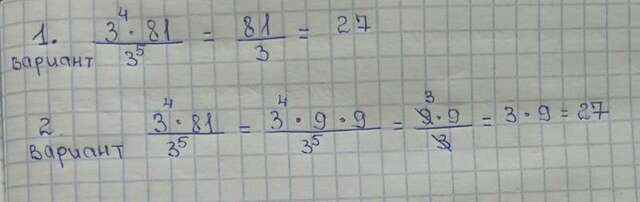 1. вариант 3⁴ · 81 / 3⁵ = 81 / 3 = 27
2 вариант 3⁴ · 81 / 3⁵ = 3⁴ · 9 · 9 / 3⁵ = 9̶ ³ · 9 / 3̶ = 3 · 9 = 27